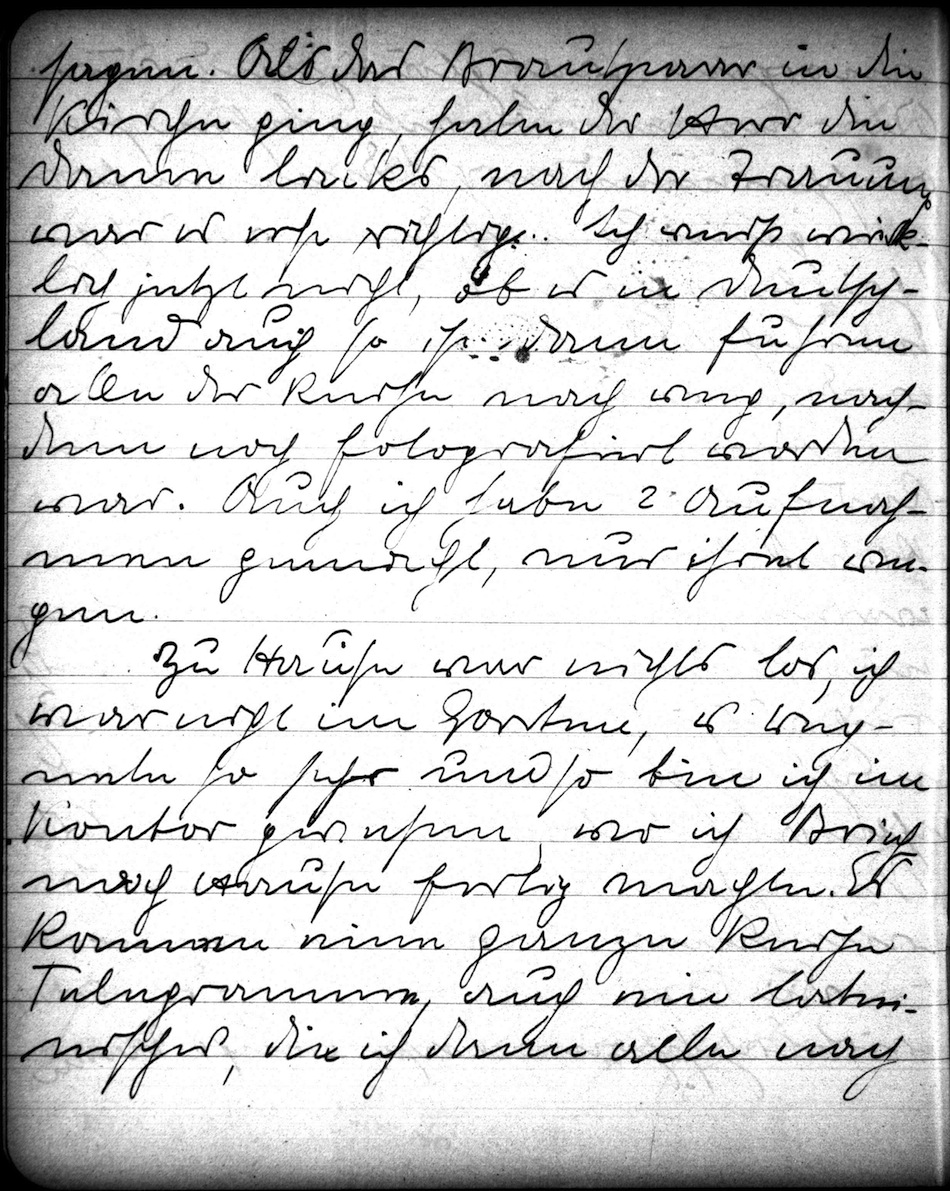 sagen. Als das Brautpaar in die
Kirche ging, hatte der Herr die
Dame links, nach der Trauung
war es erst richtig. Ich weiß wirk-
lich jetzt nicht, ob es in Deutsch-
land auch so ist. Dann fuhren
alle der Reihe nach weg, nach-
dem noch fotografiert worden
war. Auch ich habe 2 Aufnah-
men gemacht, nur ihret we-
gen.
Zu Hause war nichts los, ich
war nicht im Garten, es reg-
nete so sehr und so bin ich im
Kontor gewesen, wo ich Briefe
nach Hause fertig machte. Es
kamen eine ganze Reihe
Telegramme, auch ein latei-
nisches, die ich dann alle nach